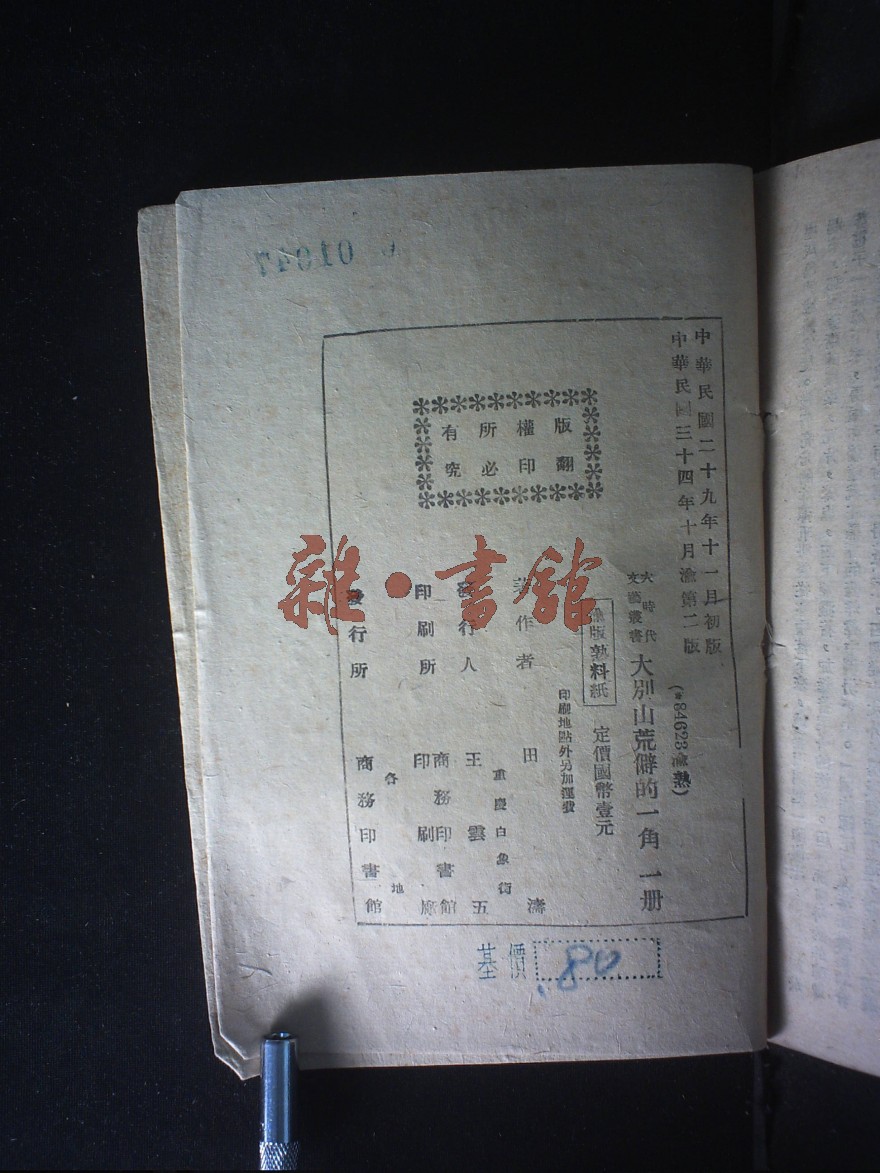 中華民國二十九年十一月初版
中華民國三十四年十月渝第二版
(*84623渝熟)
大時代
文藝叢書
大別山荒僻的一角 一册
渝版熟料紙
定價國幣壹元
印刷地點外另加運費
版權所有
翻印必究
著作者 田濤
重慶白象街
發行人 王雲五
印刷所 商務印書館
印刷廠
各地
發行所 商務印書館
01047
基價 .80
雜·書舘